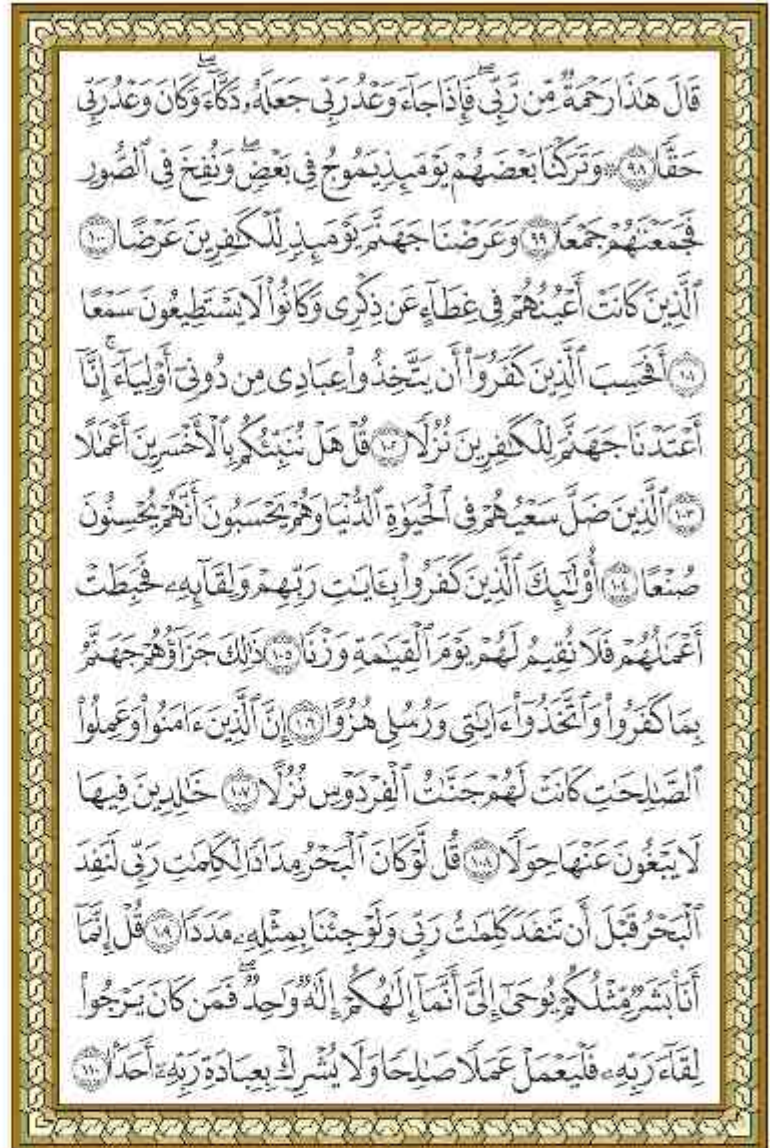 قَالَ هَٰذَا رَحْمَةٌ مِّن رَّبِّيۖ فَإِذَا جَآءَ وَعْدُ رَبِّي جَعَلَهُۥ دَكَّآءَۖ وَكَانَ وَعْدُ رَبِّي
حَقّٗا ٩٨ ۞ وَتَرَكۡنَا بَعۡضَهُمۡ يَوۡمَئِذٖ يَمُوجُ فِي بَعۡضٖۖ وَنُفِخَ فِي ٱلصُّورِ
فَجَمَعۡنَٰهُمۡ جَمۡعٗا ٩٩ وَعَرَضۡنَا جَهَنَّمَ يَوۡمَئِذٖ لِّلۡكَٰفِرِينَ عَرۡضًا ١٠٠
ٱلَّذِينَ كَانَتۡ أَعۡيُنُهُمۡ فِي غِطَآءٍ عَن ذِكۡرِي وَكَانُواْ لَا يَسۡتَطِيعُونَ سَمۡعًا
١٠١ أَفَحَسِبَ ٱلَّذِينَ كَفَرُوٓاْ أَن يَتَّخِذُواْ عِبَادِي مِن دُونِيٓ أَوۡلِيَآءَۚ إِنَّآ
أَعۡتَدۡنَا جَهَنَّمَ لِلۡكَٰفِرِينَ نُزُلٗا ١٠٢ قُلۡ هَلۡ نُنَبِّئُكُم بِٱلۡأَخۡسَرِينَ أَعۡمَٰلًا
١٠٣ ٱلَّذِينَ ضَلَّ سَعۡيُهُمۡ فِي ٱلۡحَيَوٰةِ ٱلدُّنۡيَا وَهُمۡ يَحۡسَبُونَ أَنَّهُمۡ يُحۡسِنُونَ
صُنۡعًا ١٠٤ أُوْلَٰٓئِكَ ٱلَّذِينَ كَفَرُواْ بِـَٔايَٰتِ رَبِّهِمۡ وَلِقَآئِهِۦ فَحَبِطَتۡ
أَعۡمَٰلُهُمۡ فَلَا نُقِيمُ لَهُمۡ يَوۡمَ ٱلۡقِيَٰمَةِ وَزۡنٗا ١٠٥ ذَٰلِكَ جَزَآؤُهُمۡ جَهَنَّمُ
بِمَا كَفَرُواْ وَٱتَّخَذُوٓاْ ءَايَٰتِي وَرُسُلِي هُزُوًا ١٠٦ إِنَّ ٱلَّذِينَ ءَامَنُواْ وَعَمِلُواْ
ٱلصَّٰلِحَٰتِ كَانَتۡ لَهُمۡ جَنَّٰتُ ٱلۡفِرۡدَوۡسِ نُزُلًا ١٠٧ خَٰلِدِينَ فِيهَا
لَا يَبۡغُونَ عَنۡهَا حِوَلٗا ١٠٨ قُل لَّوۡ كَانَ ٱلۡبَحۡرُ مِدَادٗا لِّكَلِمَٰتِ رَبِّي لَنَفِدَ
ٱلۡبَحۡرُ قَبۡلَ أَن تَنفَدَ كَلِمَٰتُ رَبِّي وَلَوۡ جِئۡنَا بِمِثۡلِهِۦ مَدَدٗا ١٠٩ قُلۡ إِنَّمَآ
أَنَا۠ بَشَرٞ مِّثۡلُكُمۡ يُوحَىٰٓ إِلَيَّ أَنَّمَآ إِلَٰهُكُمۡ إِلَٰهٞ وَٰحِدٞۖ فَمَن كَانَ يَرۡجُواْ
لِقَآءَ رَبِّهِۦ فَلۡيَعۡمَلۡ عَمَلٗا صَٰلِحٗا وَلَا يُشۡرِكۡ بِعِبَادَةِ رَبِّهِۦٓ أَحَدَۢا ١١٠